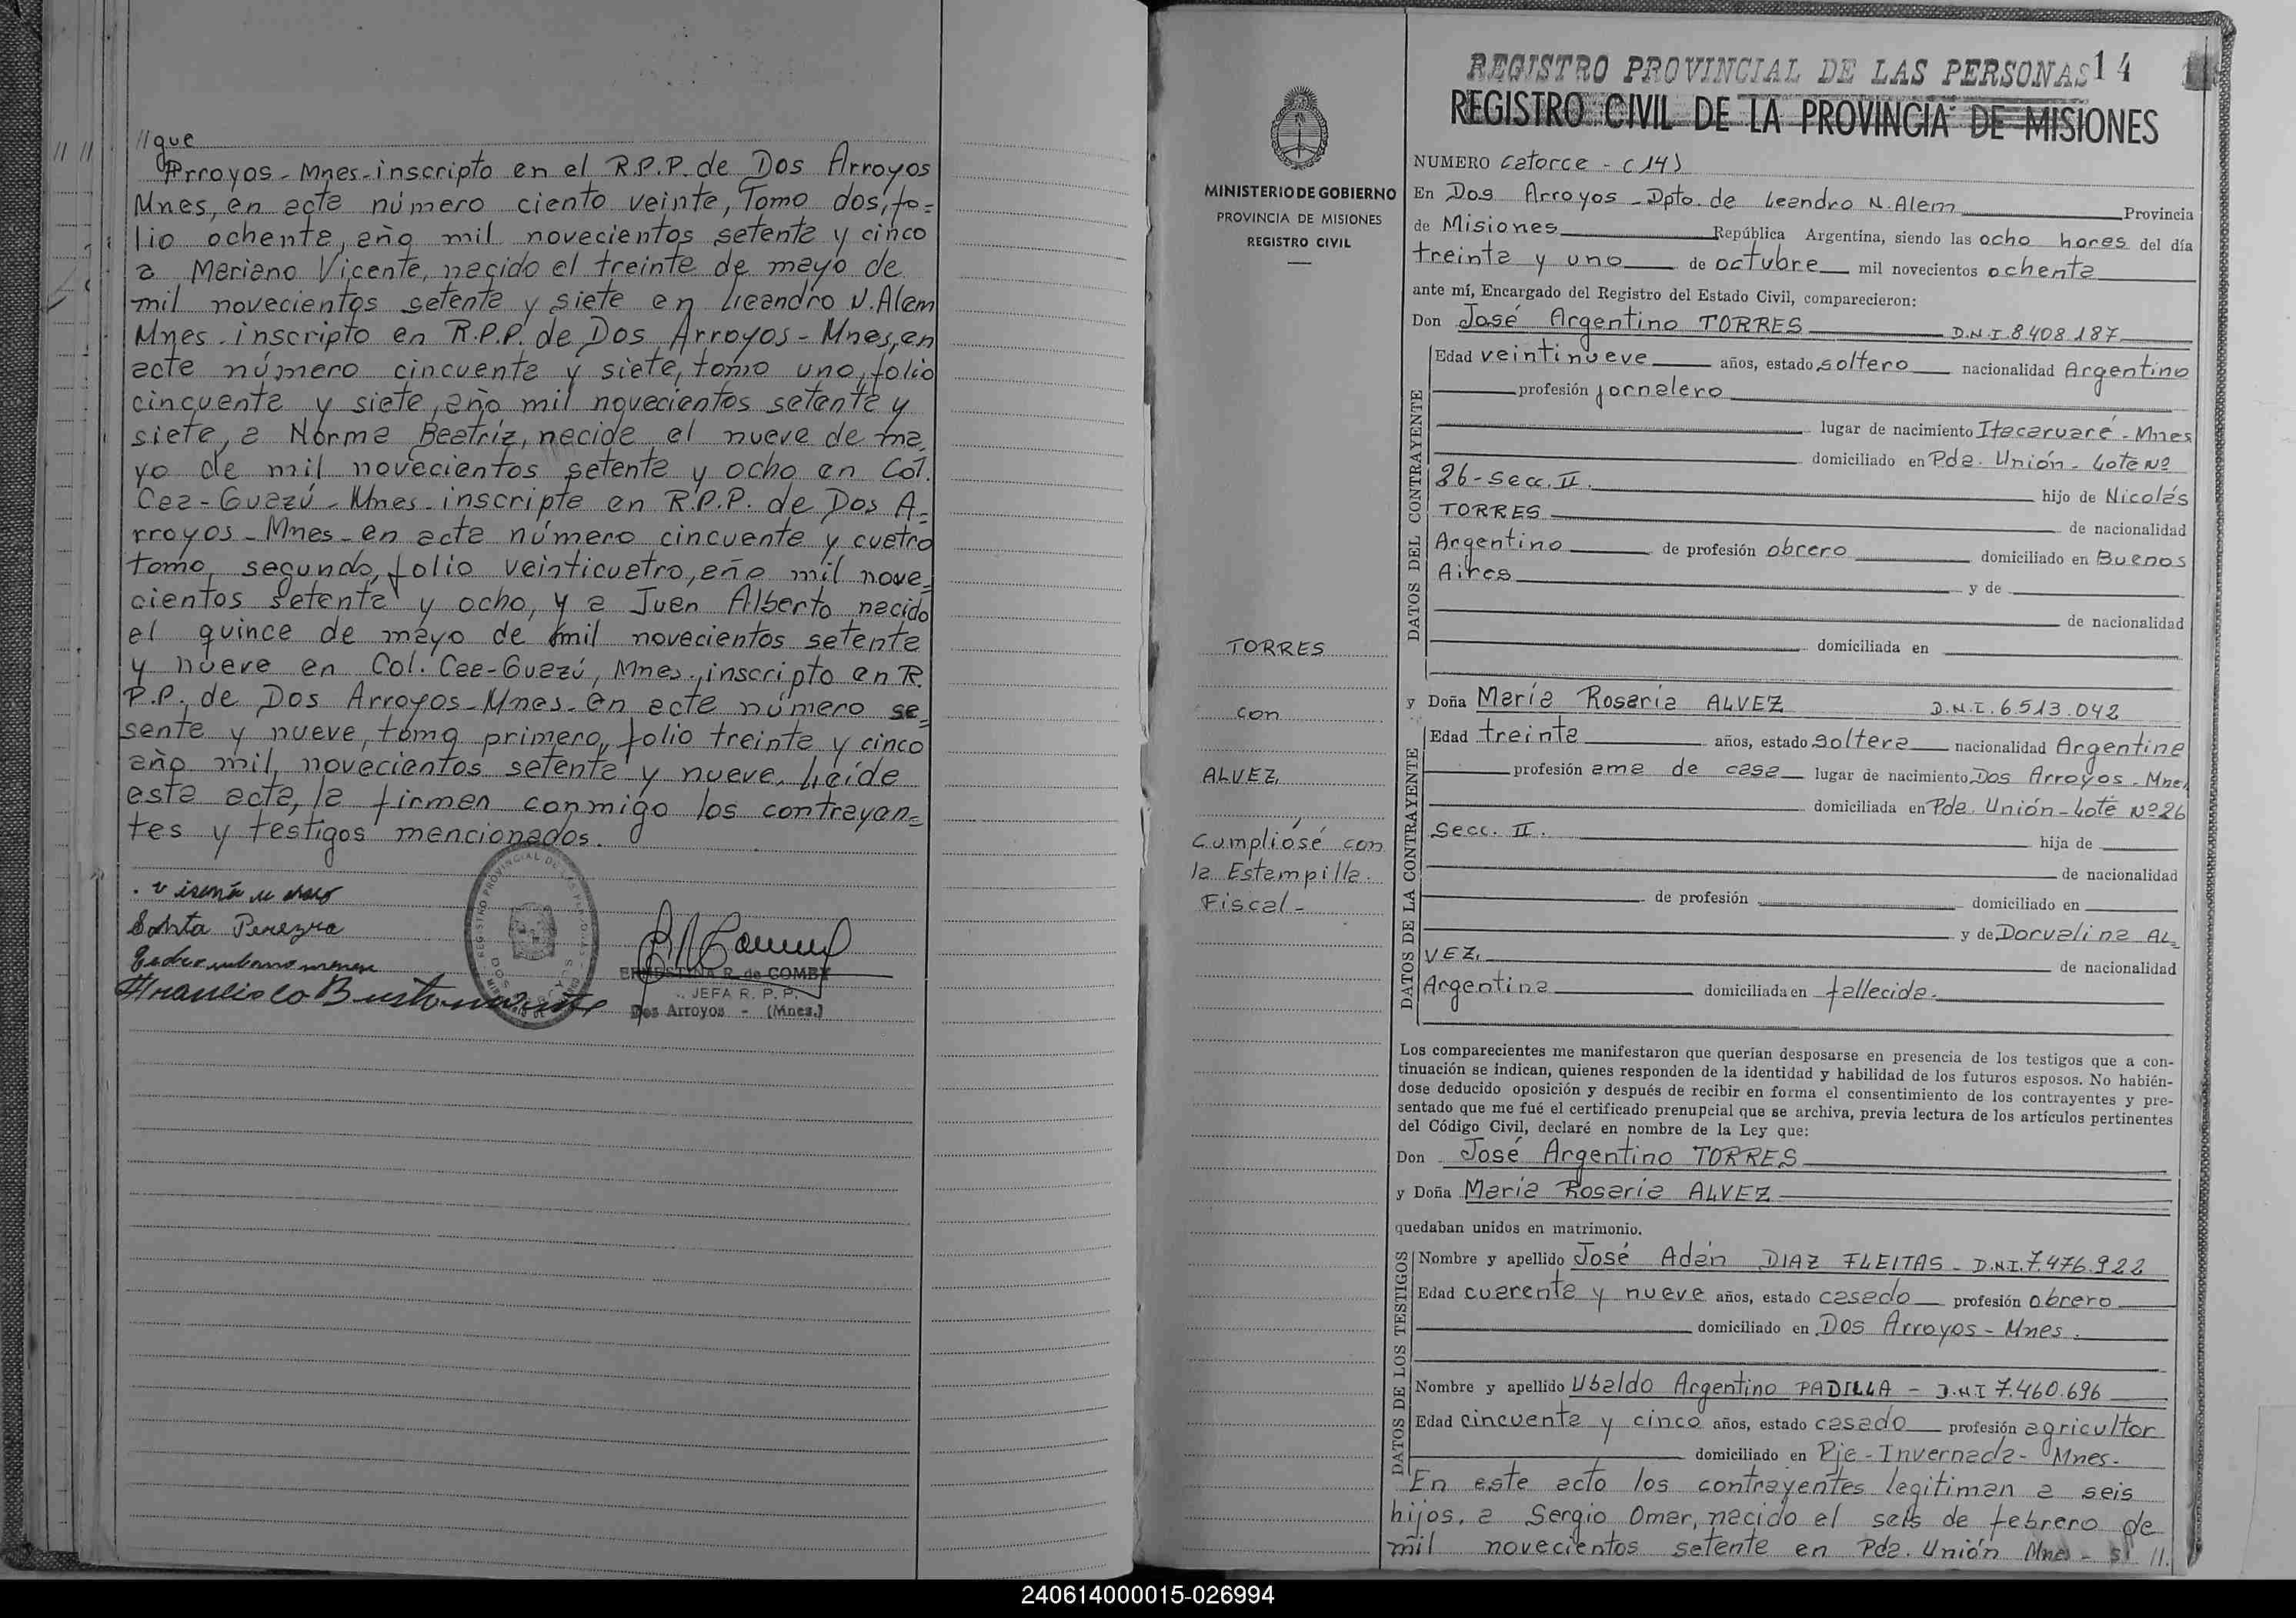 // que
Arroyos - Mnes - inscripto en el R.P.P. de Dos Arroyos
Mnes, en acta número ciento veinte, Tomo dos, fo=
lio ochenta, año mil novecientos setenta y cinco
a Mariano Vicente, nacido el treinta de mayo de
mil novecientos setenta y siete en Leandro N. Alem
Mnes - inscripto en R.P.P. de Dos Arroyos - Mnes, en
acta número cincuenta y siete, tomo uno, folio
cincuenta y siete, año mil novecientos setenta y
siete, a Norma Beatríz, nacida el nueve de ma
yo de mil novecientos setenta y ocho en Col.
Caa-Guazú - Mnes - inscripta en R.P.P. de Dos A=
rroyos - Mnes - en acta número cincuenta y cuatro
tomo segundo, folio veinticuatro, año mil nove=
cientos setenta y ocho, y a Juan Alberto nacido
el quince de mayo de mil novecientos setenta
y nueve en Col. Caa-Guazú, Mnes., inscripto en R.
P.P. de Dos Arroyos - Mnes - en acta número se=
senta y nueve, tomo primero, folio treinta y cinco
año mil novecientos setenta y nueve. Leída
esta acta, la firman conmigo los contrayen=
tes y testigos mencionados.
Santa Pereyra
ERNESTINA R. de COMBY
JEFA R. P. P.
Dos Arroyos - (Mnes.)
REGISTRO PROVINCIAL DE LAS PERSONAS 14
REGISTRO CIVIL DE LA PROVINCIA DE MISIONES
MINISTERIO DE GOBIERNO
PROVINCIA DE MISIONES
REGISTRO CIVIL
TORRES
con
ALVEZ
Cumplióse con
la Estampilla
Fiscal -
NUMERO catorce - (14)
En Dos Arroyos - Dpto. de Leandro N. Alem Provincia
de Misiones República Argentina, siendo las ocho horas del día
treinta y uno de octubre mil novecientos ochenta
ante mí, Encargado del Registro del Estado Civil, comparecieron:
Don José Argentino TORRES D.N.I. 8.408.187
DATOS DEL CONTRAYENTE
Edad veintinueve años, estado soltero nacionalidad Argentino
profesión jornalero
lugar de nacimiento Itacaruaré - Mnes
domiciliado en Pda. Unión - Lote Nº
26 - Secc. II. hijo de Nicolás
TORRES de nacionalidad
Argentino de profesión obrero domiciliado en Buenos
Aires y de
de nacionalidad
domiciliada en
y Doña María Rosaria ALVEZ D.N.I. 6.513.042
DATOS DE LA CONTRAYENTE
Edad treinta años, estado soltera nacionalidad Argentina
profesión ama de casa lugar de nacimiento Dos Arroyos - Mnes
domiciliada en Pda. Unión - Lote Nº 26
Secc. II. hija de
de nacionalidad
de profesión domiciliado en
y de Dorvalina AL=
VEZ. de nacionalidad
Argentina domiciliada en fallecida.
Los comparecientes me manifestaron que querían desposarse en presencia de los testigos que a con-
tinuación se indican, quienes responden de la identidad y habilidad de los futuros esposos. No habién-
dose deducido oposición y después de recibir en forma el consentimiento de los contrayentes y pre-
sentado que me fué el certificado prenupcial que se archiva, previa lectura de los artículos pertinentes
del Código Civil, declaré en nombre de la Ley que:
Don José Argentino TORRES
y Doña María Rosaria ALVEZ
quedaban unidos en matrimonio.
DATOS DE LOS TESTIGOS
Nombre y apellido José Adán DIAZ FLEITAS - D.N.I. 7.476.922
Edad cuarenta y nueve años, estado casado profesión obrero
domiciliado en Dos Arroyos - Mnes.
Nombre y apellido Ubaldo Argentino PADILLA - D.N.I 7.460.696
Edad cincuenta y cinco años, estado casado profesión agricultor
domiciliado en Pje - Invernada - Mnes.
En este acto los contrayentes legitiman a seis
hijos, a Sergio Omar, nacido el seis de febrero de
mil novecientos setenta en Pda. Unión Mnes - //.
240614000015-026994